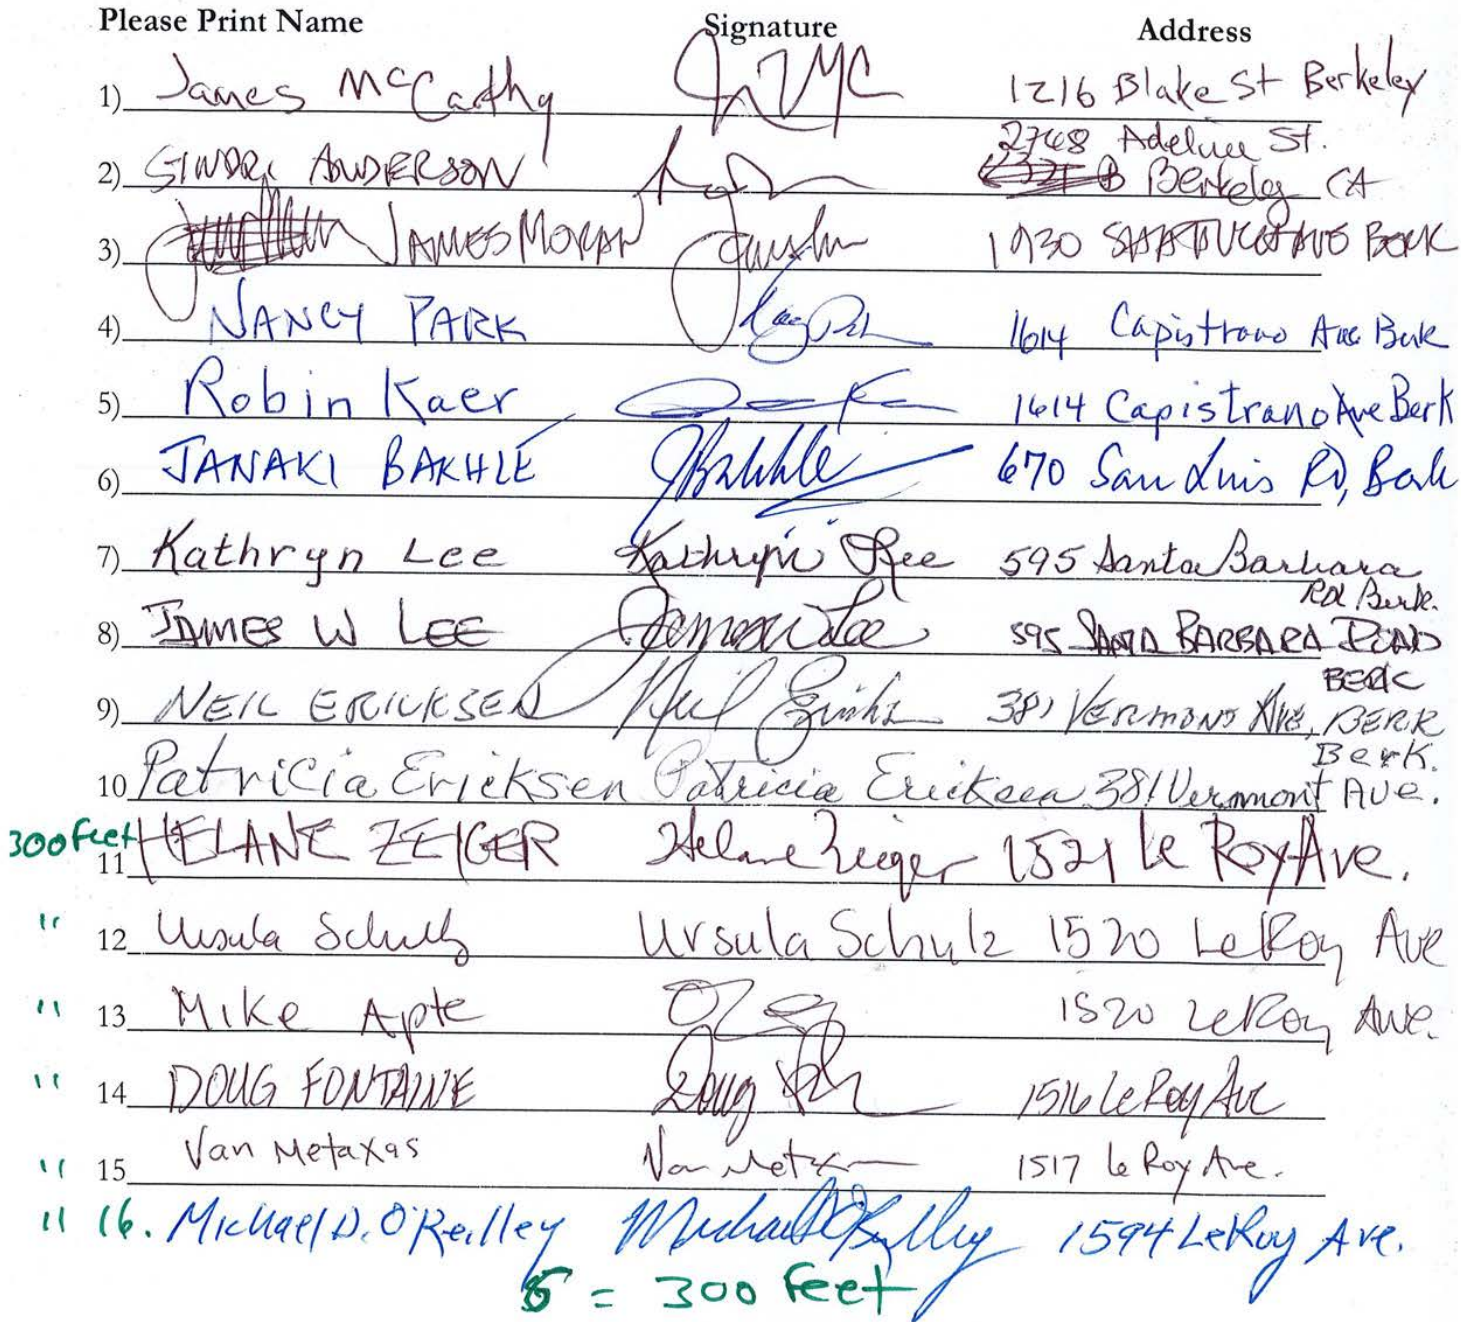 Please Print Name Signature Address
1) James McCarthy 1216 Blake St Berkeley
2748 Adeline St.
2) SINDRI ANDERSON Berkeley CA
3) JAMES MORAN 1930 SHATTUCK AVE BERK
4) NANCY PARK 1614 Capistrano Ave Berk
5) Robin Kaer 1614 Capistrano Ave Berk
6) JANAKI BAKHLE JBakhle 670 San Luis Rd, Berk
7) Kathryn Lee Kathryn Lee 595 Santa Barbara
Rd Berk.
8) JAMES W LEE James W Lee 595 SANTA BARBARA ROAD
BERK
9) NEIL ERICKSEN Neil 381 VERMONT AVE, BERK
Berk.
10 Patricia Ericksen Patricia Ericksen 381 Vermont Ave.
300 feet 11 HELANE ZEIGER Helane Zeiger 1521 Le Roy Ave.
" 12 Ursula Schulz Ursula Schulz 1520 LeRoy Ave
" 13 Mike Apte 1520 LeRoy Ave.
" 14 DOUG FONTAINE Doug 1516 LeRoy Ave
" 15 Van Metaxas Van Metax 1517 Le Roy Ave.
" 16. Michael D. O'Reilley Michael O'Reilley 1594 LeRoy Ave.
= 300 feet